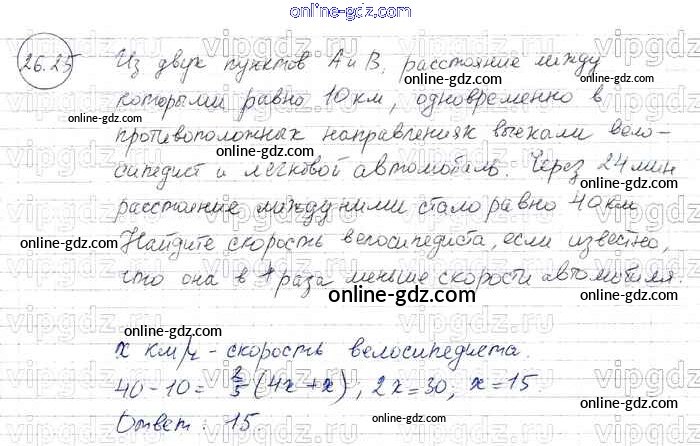 online-gdz.com
26.25 Из двух пунктов А и В, расстояние между
online-gdz.com
которыми равно 10 км, одновременно в
online-gdz.com
противоположных направлениях выехали вело-
online-gdz.com
сипедист и легковой автомобиль. Через 24 мин
online-gdz.com
расстояние между ними стало равно 40 км
online-gdz.com online-gdz.com
Найдите скорость велосипедиста, если известно,
что она в 4 раза меньше скорости автомобиля.
online-gdz.com
online-gdz.com
x км/ч - скорость велосипедиста.
online-gdz.com
40-10= 2/5 (4x+x), 2x=30; x=15.
online-gdz.com
Ответ: 15.
online-gdz.com